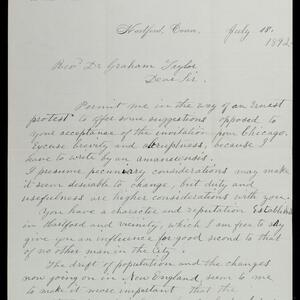 Hartford, Conn. July 18.
1892
Revd Dr Graham Taylor
Dear Sir.
Permit me in the way of an earnest
protest to offer some suggestions opposed to
your acceptance of the invitation from Chicago.
Excuse brevity and abruptness, because I
have to write by an amanuensis.
I presume pecuniary considerations may make
it seem desirable to change, but duty and
usefulness are higher considerations with you.
You have a character and reputation established
in Hartford and vicinity, which I am free to say
give you an influence for good second to that
of no other man in the city.
The drift of population and the changes
now going on in New England, seem to me
to make it more important that the